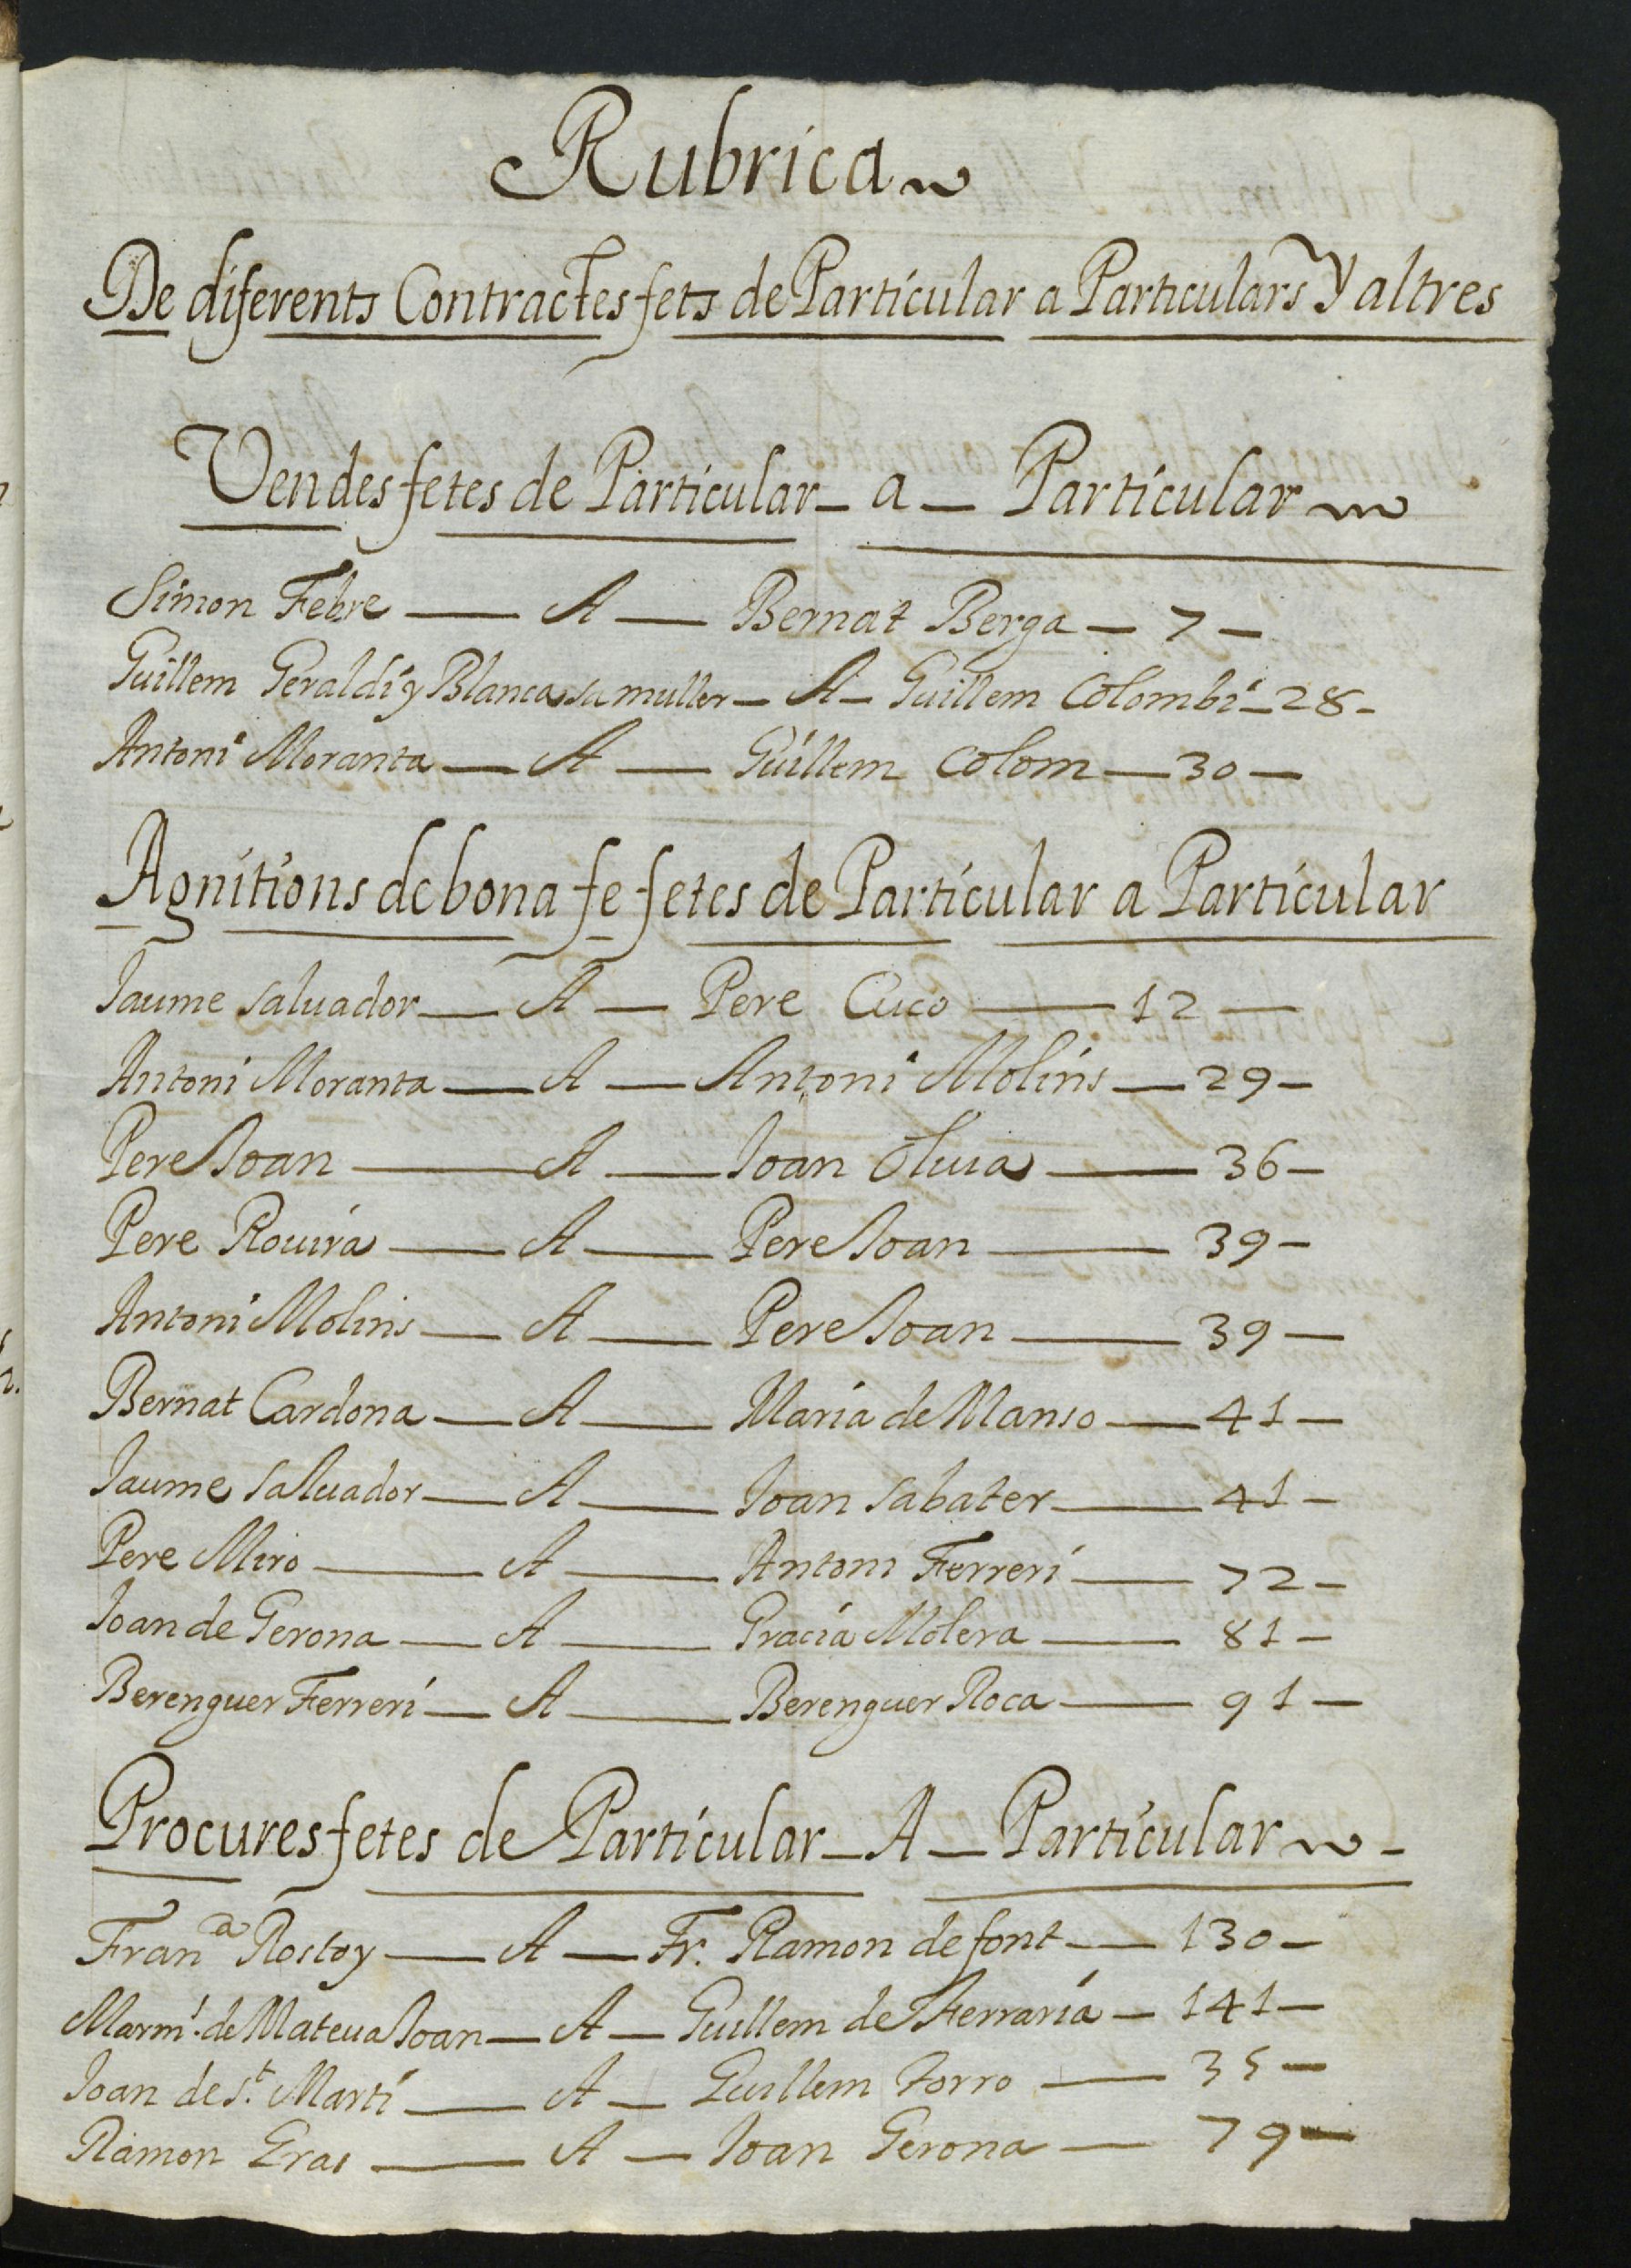 Rubrica
De diferents Contractes fets de Particular a Particulars y altres
Vendes fetes de Particular - a - Particular
Simon Febre — A — Bernat Berga — 7 —
Guillem Geraldi y Blanca sa muller — A — Guillem Colombi — 28 —
Antoni Moranta — A — Guillem Colom — 30 —
Agnitions de bona fe fetes de Particular a Particular
Jaume Saluador — A — Pere Cuco — 12 —
Antoni Moranta — A — Antoni Molins — 29 —
Pere Joan — A — Joan Oluia — 36 —
Pere Rouira — A — Pere Joan — 39 —
Antoni Molins — A — Pere Joan — 39 —
Bernat Cardona — A — Maria de Manso — 41 —
Jaume Saluador — A — Joan Sabater — 41 —
Pere Miro — A — Antoni Ferreri — 72 —
Joan de Gerona — A — Gracia Molera — 81 —
Berenguer Ferreri — A — Berenguer Roca — 91 —
Procures fetes de Particular — A — Particular —
Fran.ª Rostoy — A — Fr. Ramon de font — 130 —
de Mateua Joan — A — Guillem de Ferraria — 141 —
Joan de S.t Marti — A — Guillem Torro — 35 —
Ramon Eras — A — Joan Gerona — 79 —